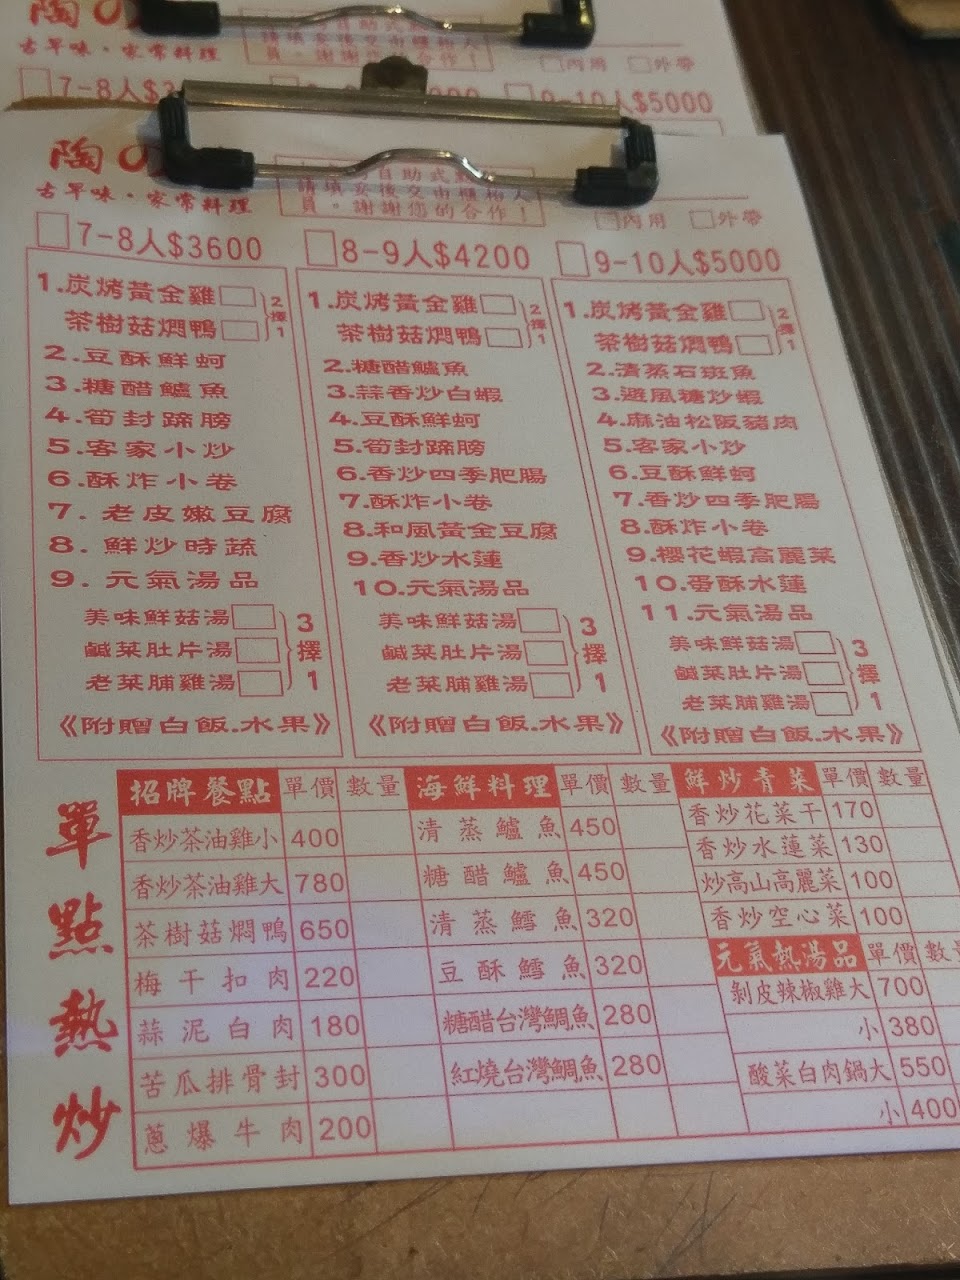 古早味·家常料理
請填妥後交由櫃枱人
員。謝謝您的合作！
內用 外帶
7-8人$3
9-10人$5000
陶の
古早味·家常料理
自助式
請填妥後交由櫃枱人
員。謝謝您的合作！
內用 外帶
7-8人$3600
1.炭烤黃金雞
茶樹菇燜鴨
2擇1
2.豆酥鮮蚵
3.糖醋鱸魚
4.筍封蹄膀
5.客家小炒
6.酥炸小卷
7.老皮嫩豆腐
8.鮮炒時蔬
9.元氣湯品
美味鮮菇湯
鹹菜肚片湯
老菜脯雞湯
3擇1
《附贈白飯.水果》
8-9人$4200
1.炭烤黃金雞
茶樹菇燜鴨
2擇1
2.糖醋鱸魚
3.蒜香炒白蝦
4.豆酥鮮蚵
5.筍封蹄膀
6.香炒四季肥腸
7.酥炸小卷
8.和風黃金豆腐
9.香炒水蓮
10.元氣湯品
美味鮮菇湯
鹹菜肚片湯
老菜脯雞湯
3擇1
《附贈白飯.水果》
9-10人$5000
1.炭烤黃金雞
茶樹菇燜鴨
2擇1
2.清蒸石斑魚
3.避風糖炒蝦
4.麻油松阪豬肉
5.客家小炒
6.豆酥鮮蚵
7.香炒四季肥腸
8.酥炸小卷
9.櫻花蝦高麗菜
10.蛋酥水蓮
11.元氣湯品
美味鮮菇湯
鹹菜肚片湯
老菜脯雞湯
3擇1
《附贈白飯.水果》
單點熱炒
招牌餐點 單價 數量
香炒茶油雞小 400
香炒茶油雞大 780
茶樹菇燜鴨 650
梅干扣肉 220
蒜泥白肉 180
苦瓜排骨封 300
蔥爆牛肉 200
海鮮料理 單價 數量
清蒸鱸魚 450
糖醋鱸魚 450
清蒸鱈魚 320
豆酥鱈魚 320
糖醋台灣鯛魚 280
紅燒台灣鯛魚 280
鮮炒青菜 單價 數量
香炒花菜干 170
香炒水蓮菜 130
炒高山高麗菜 100
香炒空心菜 100
元氣熱湯品 單價 數量
剝皮辣椒雞大 700
小 380
酸菜白肉鍋大 550
小 400